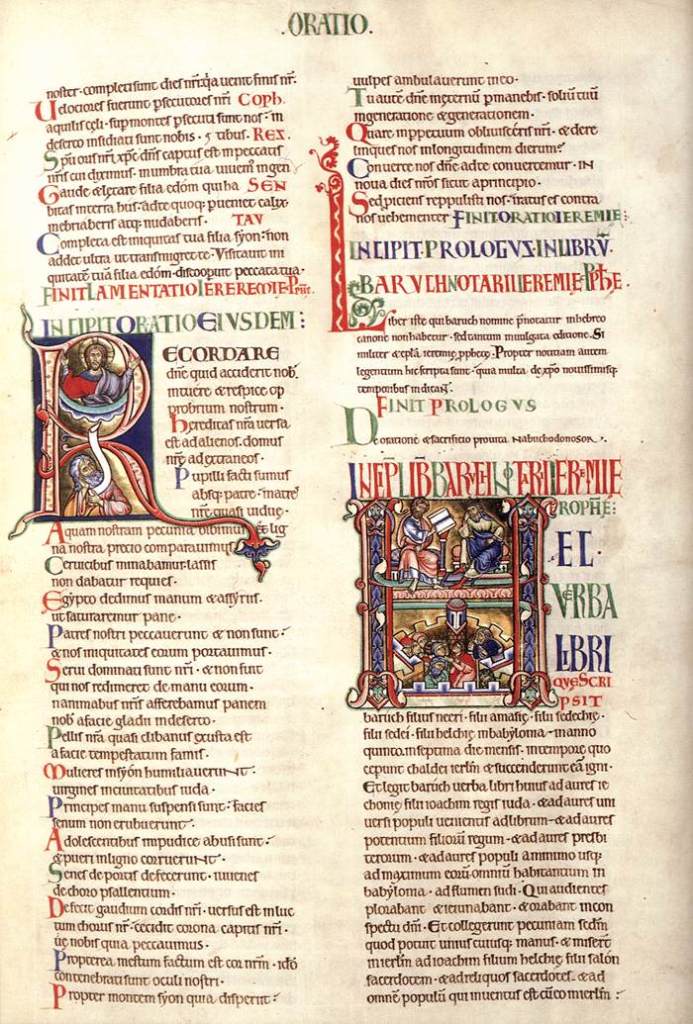 .ORATIO.
noster. completi sunt dies nr̄i. q̄a uenit finis nr̄.
Velociores fuerunt p̄secutores nr̄i COPH.
aquilis cęli. sup montes p̄secuti sunt nos. in
deserto insidiati sunt nobis. RES.
Sp̄s oris nr̄i xp̄c dn̄s captus est in peccatis
nr̄is cui diximus. in umbra tua uiuem̄ in gen
Gaude & lętare filia edóm quę ha SEN
bitas in terra hus. ad te quoq; pueniet calix.
inebriaberis atq; nudaberis. TAV
Completa est iniquitas tua filia syon. non
addet ultra ut transmigret te. Visitauit ini
quitatē tuā filia edóm. discoopuit peccata tua.
FINIT LAMENTATIO IEREMIE
INCIPIT ORATIO EIVSDEM:
RECORDARE
dn̄e quid acciderit nob̄.
intuere & respice op
probrium nostrum.
Hereditas nr̄a uersa
est ad alienos. domus
nr̄e ad extraneos.
Pupilli facti sumus
absq; patre. matres
nr̄e quasi uidue.
Aquam nostram pecunia bibimus. & lig
na nostra precio comparauimus.
Ceruicibus minabamur. lassis
non dabatur requies.
Egypto dedimus manum & assyriis.
ut saturaremur pane.
Patres nostri peccauerunt & non sunt:
& nos iniquitates eorum portauimus.
Serui dominati sunt nr̄i. & non fuit
qui nos redimeret de manu eorum.
In animabus nr̄is afferebamus panem
nob̄ a facie gladii in deserto.
Pellis nr̄a quasi clibanus exusta est
a facie tempestatum famis.
Mulieres in syón humiliauerunt.
uirgines in ciuitatibus iuda.
Principes manu suspensi sunt. facies
senum non erubuerunt.
Adolescentibus impudice abusi sunt:
& pueri in ligno corruerunt.
Senes de portis defecerunt. iuuenes
de choro psallentium.
Defecit gaudium cordis nr̄i. uersus est in luc
tum chorus nr̄. cecidit corona capitis nr̄i.
uę nobis quia peccauimus.
Propterea mestum factum est cor nr̄m. idó
contenebrati sunt oculi nostri.
Propter montem syon quia disperiit:
uulpes ambulauerunt in eo.
Tu autē dn̄e in ęternū p̄manebis. soliū tuū
in generatione & generationem.
Quare in ppetuum obliuisceris nr̄i. & dere
linques nos in longitudinem dierum?
Conuerte nos dn̄e ad te & conuertemur. IN
noua dies nr̄os sicut a principio.
Sed piciens reppulisti nos. iratus es contra
nos uehementer FINIT ORATIO IEREMIE:
INCIPIT. PROLOGVS. IN LIBRV̄.
BARVCH NOTARII IEREMIE. Pphe.
Liber iste qui baruch nomine p̄notatur. in hebreo
canone non habetur. sed tantum in uulgata editione. Si
militer & epl̄a ieremię pphetę. Propter notitiam autem
legentium hic scripta sunt. quia multa de xp̄o nouissimisq;
temporibus indicant.
FINIT PROLOGVS
De oratione & sacrificio pro uita Nabuchodonosor.
INCIP̄ LIB̄ BARVCH NOTARII IEREMIE
PROPHE:
ET.
VERBA
LIBRI
QVE SCRI
PSIT
baruch filius neeri. filii amasię. filii sedechię.
filii sedei. filii helchię in babylonia. in anno
quinto. in septima die mensis. in tempore quo
ceperunt chaldei ierl̄m & succenderunt eā igni.
Et legit baruch uerba libri huius ad aures ie
chonię filii ioachim regis iuda. & ad aures uni
uersi populi uenientis ad librum. & ad aures
potentium filiorū regum. & ad aures presbi
terorum. & ad aures populi a minimo usq;
ad maximum eorū omniū habitantium in
babylonia. ad flumen sudi. Qui audientes
plorabant & ieiunabant. & orabant in con
spectu dn̄i. Et collegerunt pecuniam scd̄m
quod potuit uniuscuiusq; manus. & miserr̄
in ierl̄m ad ioachim filium helchię filii salón
sacerdotem. & ad reliquos sacerdotes. & ad
omnē populū qui inuentus est cū eo in ierl̄m: